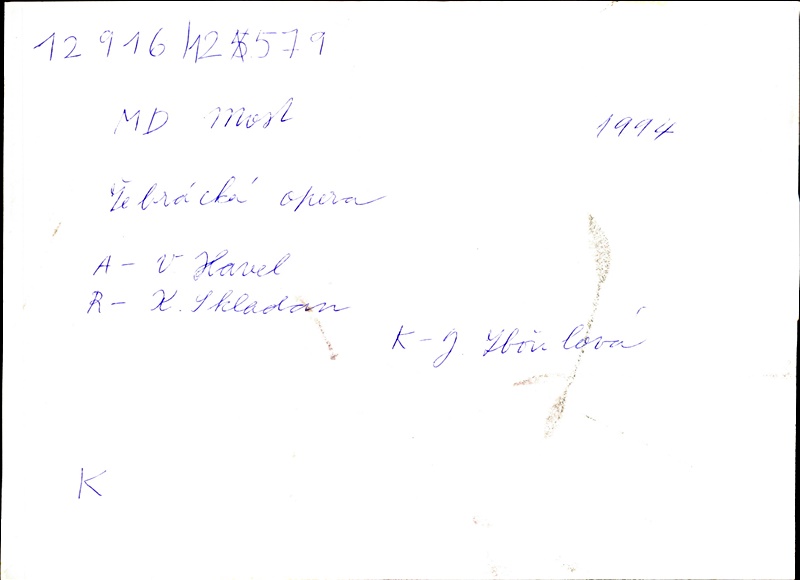 12 916 /12 579
MD Most 1994
Žebrácká opera
A - V Havel
R - K. Skladan
K - J. Zbořilová
K